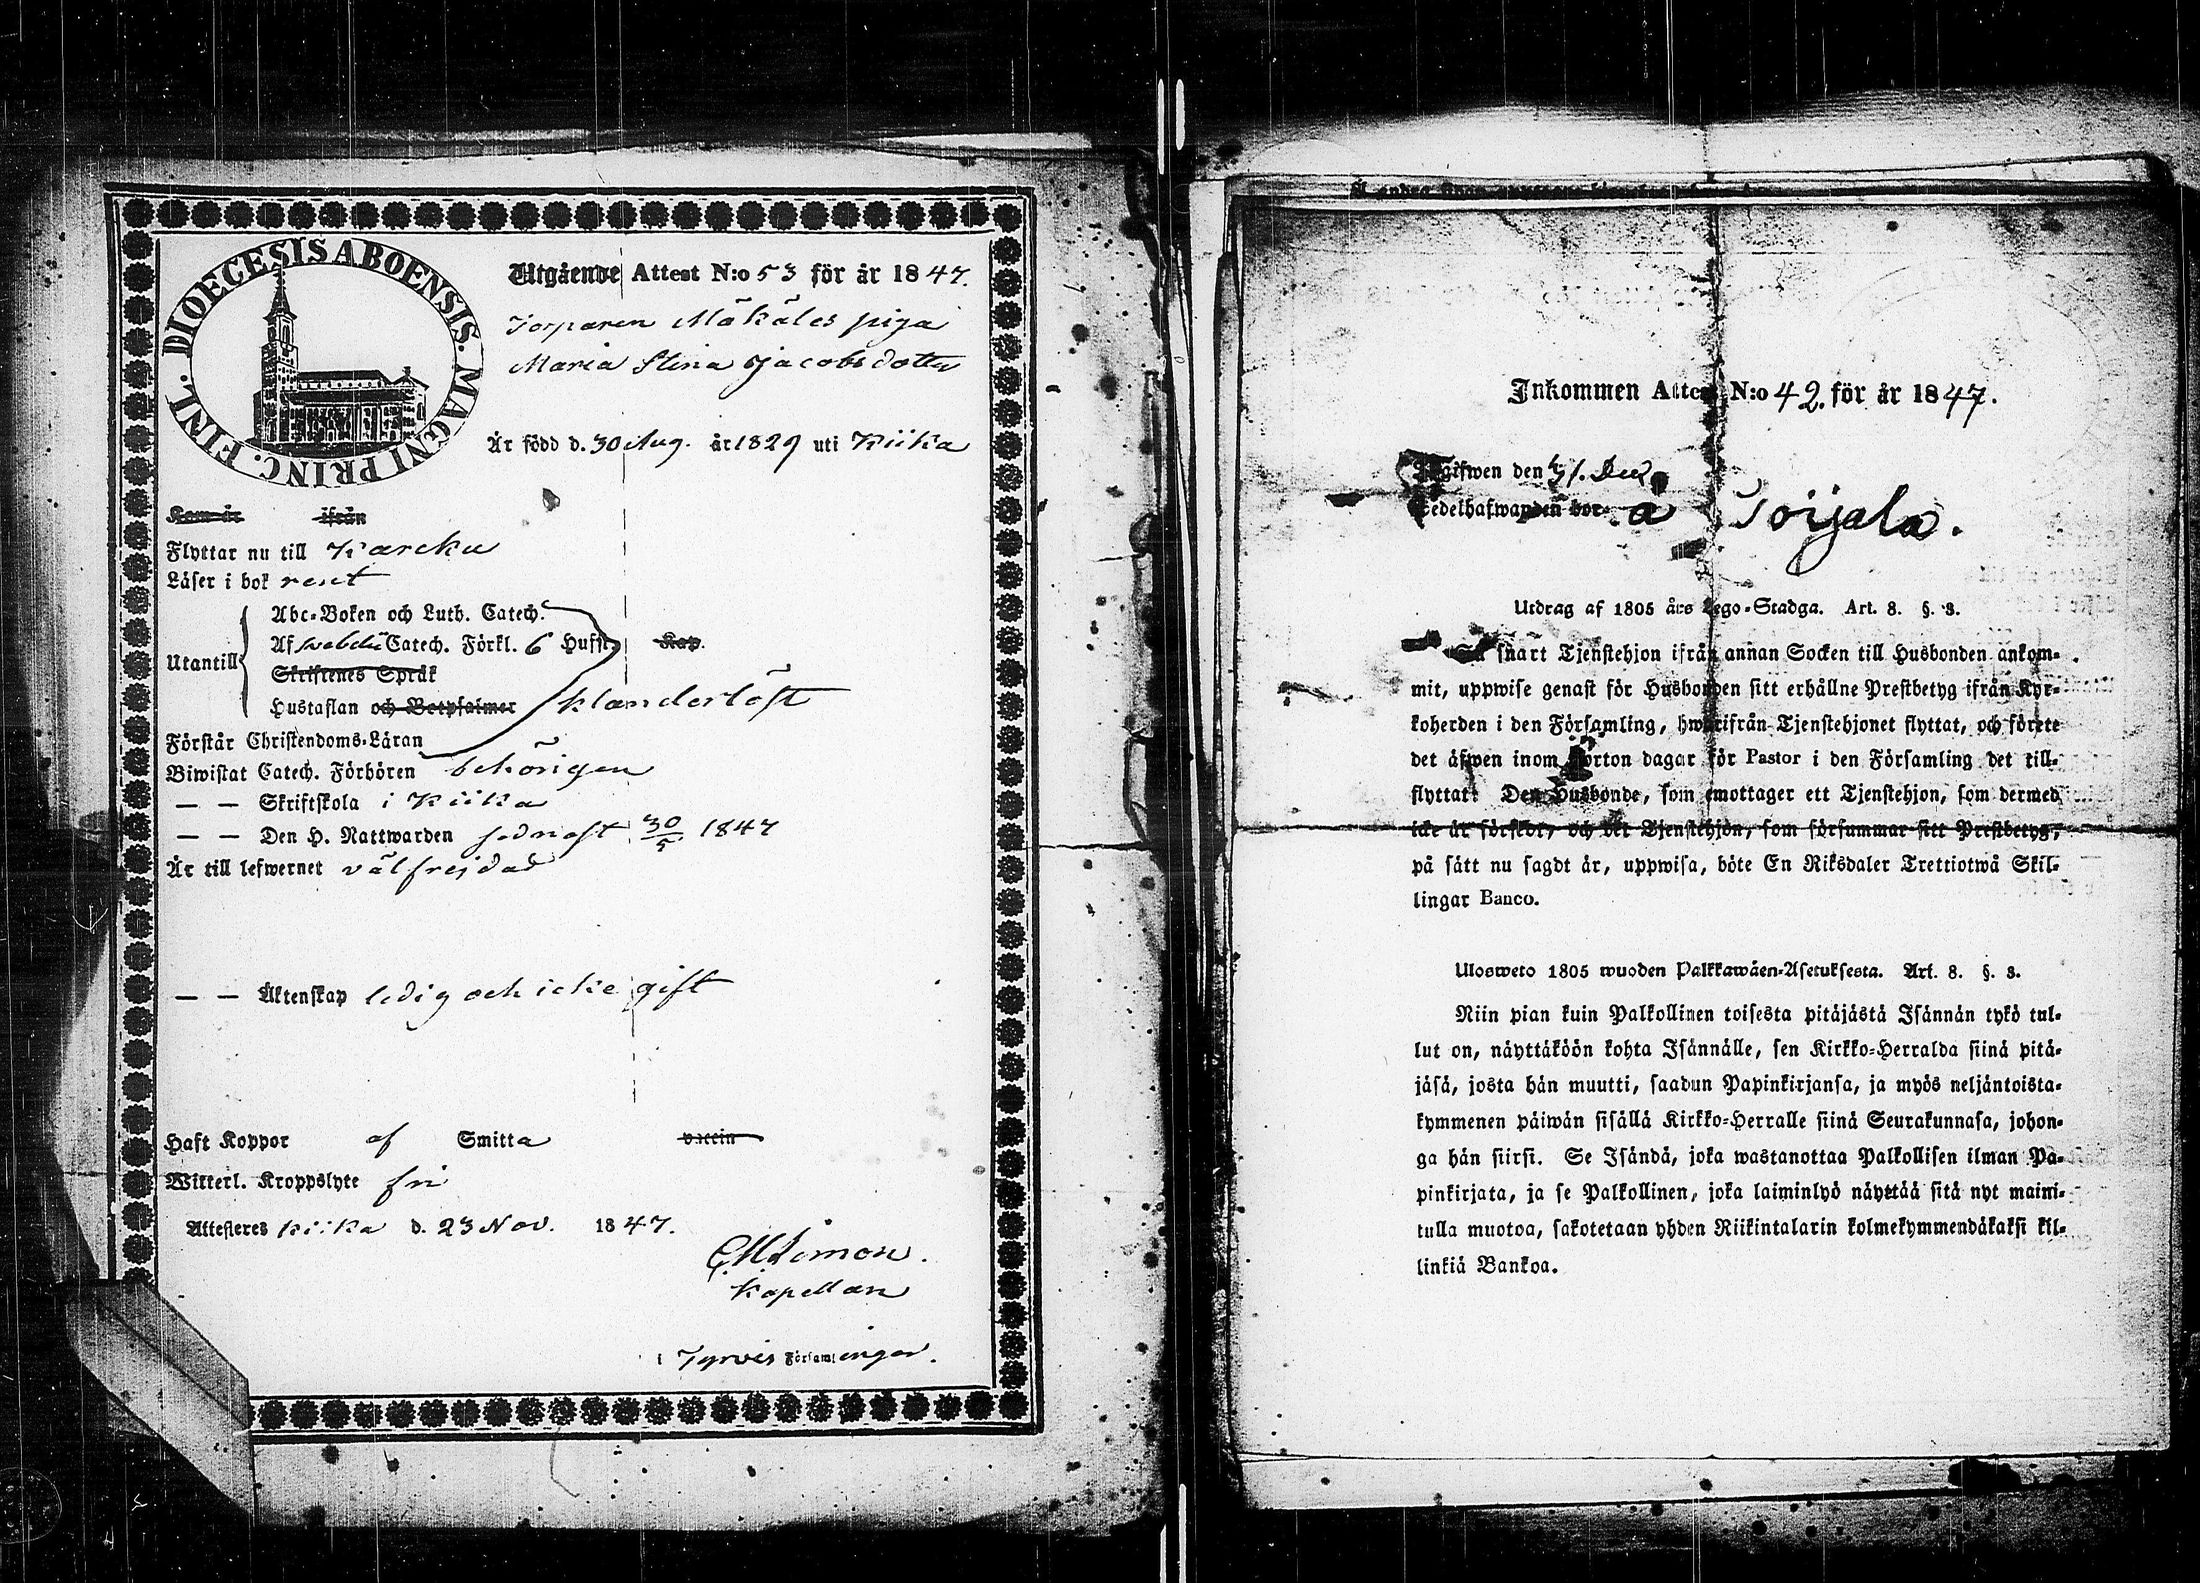 DIOECESIS ABOENSIS. MAGNI PRINC. FINL.
Utgående Attest N:o 53 för år 1847.
Torparen Mäkäles piga
Maria Stina Jacobsdotter
Är född d. 30 Aug. år 1829 uti Kiika
Kom år ifrån
Flyttar nu till Karcku
Läser i bok rent
Utantill
Abc-Boken och Luth. Catech.
Af Svebelii Catech. Förkl. 6 Hufst. Kap.
Skriftenes Språk
Hustaflan och Botpsalmer klanderlöst
Förstår Christendoms-Läran
Biwistat Catech. Förhören behörigen
— — Skriftskola i Kiika
— — Den H. Nattwarden sednast 30/5 1847
Är till lefwernet välfrejdad
— — Äktenskap ledig och icke gift
Haft Koppor af Smitta vaccin
Witterl. Kroppslyte fri
Attesteres Kiika d. 23 Nov. 1847.
Kapellan
i Tyrvis Församlingar.
Inkommen Attest N:o 42. för år 1847.
den 31. Dec
Sedelhafwanden bor å Soijala.
Utdrag af 1805 års Lego-Stadga. Art. 8. §. 3.
Så snart Tjenstehjon ifrån annan Socken till Husbonden ankom-
mit, uppwise genast för Husbonden sitt erhållne Prestbetyg ifrån Kyr-
koherden i den Församling, hwarifrån Tjenstehjonet flyttat, och förete
det äfwen inom fjorton dagar för Pastor i den Församling det till-
flyttat. Den Husbonde, som emottager ett Tjenstehjon, som dermed
icke är försedt, och det Tjenstehjon, som försummar sitt Prestbetyg,
på sätt nu sagdt är, uppwisa, böte En Riksdaler Trettiotwå Skil-
lingar Banco.
Ulosweto 1805 wuoden Palkkawäen-Asetuksesta. Art. 8. §. 3.
Niin pian kuin Palkollinen toisesta pitäjästä Isännän tykö tul-
lut on, näyttäköön kohta Isännälle, sen Kirkko-Herralda siinä pitä-
jäsä, josta hän muutti, saadun Papinkirjansa, ja myös neljäntoista-
kymmenen päiwän sisällä Kirkko-Herralle siinä Seurakunnasa, johon-
ga hän siirsi. Se Isändä, joka wastanottaa Palkollisen ilman Pa-
pinkirjata, ja se Palkollinen, joka laiminlyö näyttää sitä nyt maini-
tulla muotoa, sakotetaan yhden Riikintalarin kolmekymmendäkaksi kil-
linkiä Bankoa.